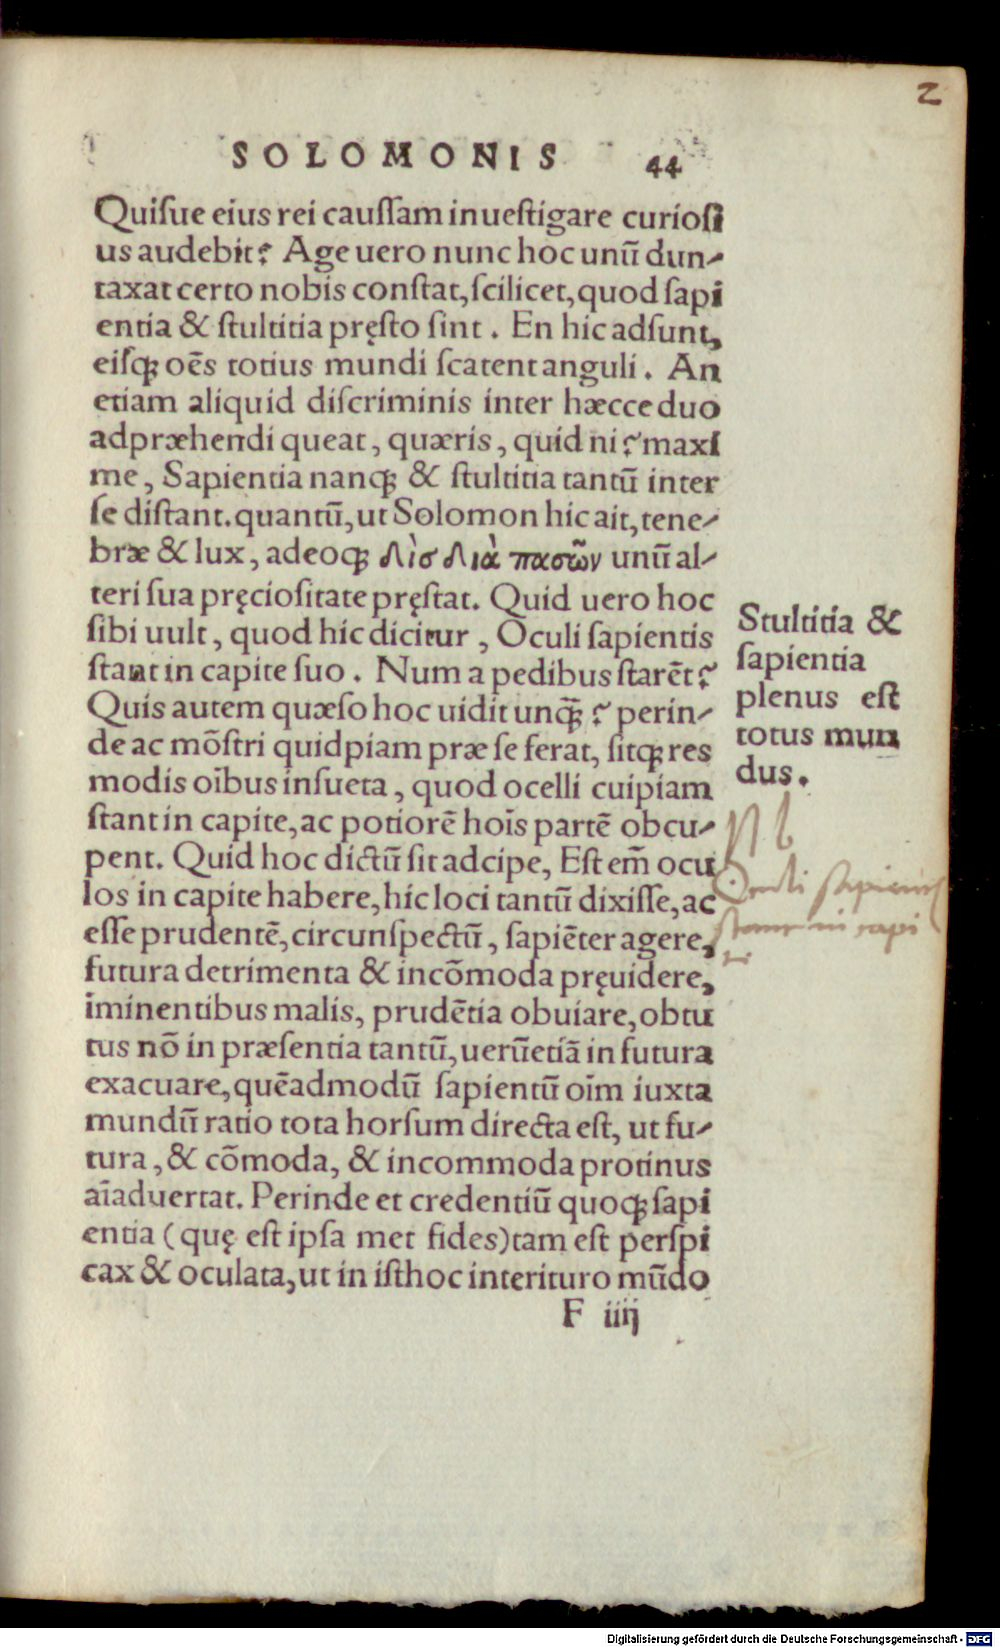 2
SOLOMONIS 44
Quiſue eius rei cauſſam inueſtigare curioſi
us audebit? Age uero nunc hoc unū dun-
taxat certo nobis conſtat, ſcilicet, quod ſapi
entia & ſtultitia pręſto ſint. En hic adſunt,
eiſqꝫ oēs totius mundi ſcatent anguli. An
etiam aliquid diſcriminis inter hæcce duo
adpræhendi queat, quæris, quid ni? maxi
me, Sapientia nanqꝫ & ſtultitia tantū inter
ſe diſtant. quantū, ut Solomon hic ait, tene-
bræ & lux, adeoqꝫ δὶσ διὰ πασῶν unū al-
teri ſua pręcioſitate pręſtat. Quid uero hoc
ſibi uult, quod hic dicitur, Oculi ſapientis
ſtant in capite ſuo. Num a pedibus ſtarēt?
Quis autem quæſo hoc uidit unq̄ꝫ? perin-
de ac mōſtri quidpiam præ ſe ferat, ſitqꝫ res
modis oībus inſueta, quod ocelli cuipiam
ſtant in capite, ac potiorē hoīs partē obcu-
pent. Quid hoc dictū ſit adcipe, Eſt em̄ ocu
los in capite habere, hic loci tantū dixiſſe, ac
eſſe prudentē, circunſpectū, ſapiēter agere,
futura detrimenta & incōmoda pręuidere,
iminentibus malis, prudētia obuiare, obtu
tus nō in præſentia tantū, uerūetiā in futura
exacuare, quēadmodū ſapientū oīm iuxta
mundū ratio tota horſum directa eſt, ut fu-
tura, & cōmoda, & incommoda protinus
aīaduertat. Perinde et credentiū quoqꝫ ſapi
entia (quę eſt ipſa met fides) tam eſt perſpi
cax & oculata, ut in iſthoc interituro mūdo
F iiij
Stultitia &
ſapientia
plenus eſt
totus mun
dus.
Nb
Oculi ſapientis
ſtant in capi
te
Digitalisierung gefördert durch die Deutsche Forschungsgemeinschaft - DFG